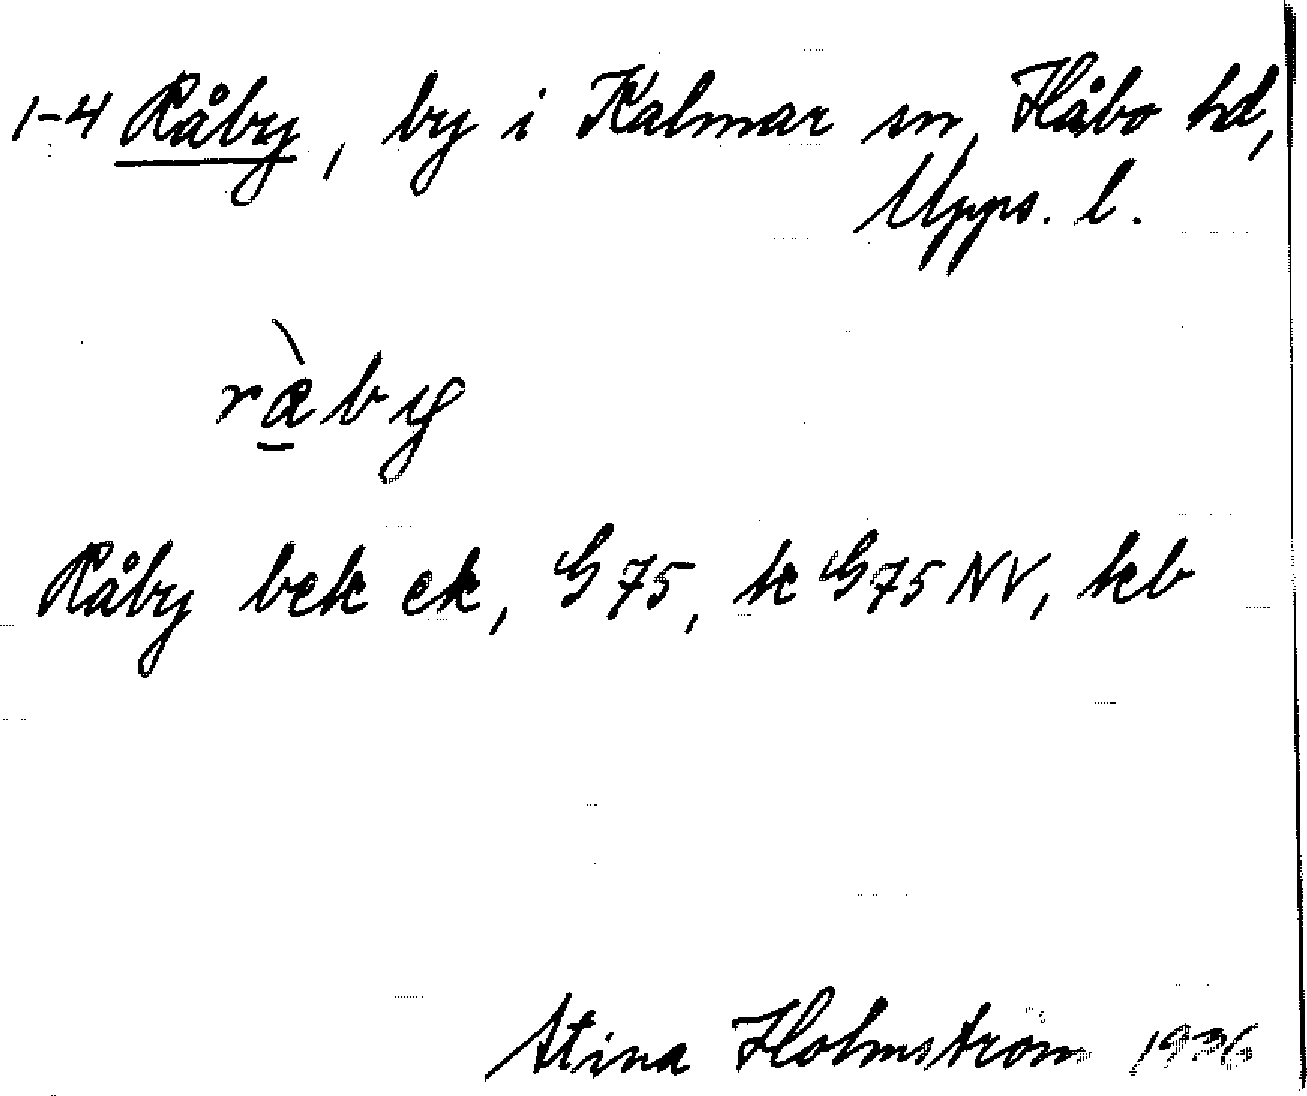 1-4 Råby, by i Kalmar sn, Håbo hd,
Upps. l.
rå̀by
Råby bek ek, G 75, k G 75 NV, kb
Stina Holmström 1936